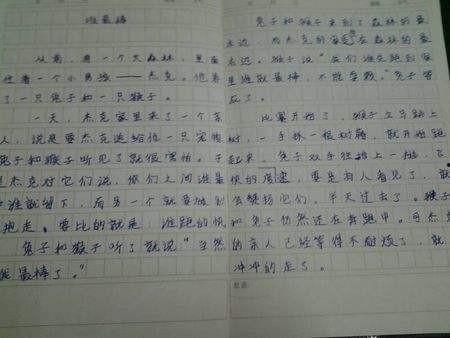 谁最棒
从前，有一个大森林，里面
住着一个小男孩——杰克。他养
了一只兔子和一只猴子。
一天，杰克家里来了一个客
人，说是要杰克送给他一只宠物
兔子和猴子听见了都很害怕。于
是杰克对它们说，你们之间谁最
棒谁就留下，而另一个就要被别
抱走。要比的就是：谁跑的快
兔子和猴子听了就说“当然
我最棒了。”
兔子和猴子来到了森林的最
末边，而杰克的家是在森林的最
末边。猴子说“我们谁先跑到家
里谁就最棒，不能拿数。”兔子答
应了。
比赛开始了，猴子立马跳上
树，一手抓一根树藤，就开始跑
起来。兔子双手往地上一趴，飞
快的奔
要是有人看见了，
会疑惑它们，半天过去了。猴子
和兔子仍然还在奔跑中。可杰克
的家人已经等得不耐烦了，就
冲冲的走了。